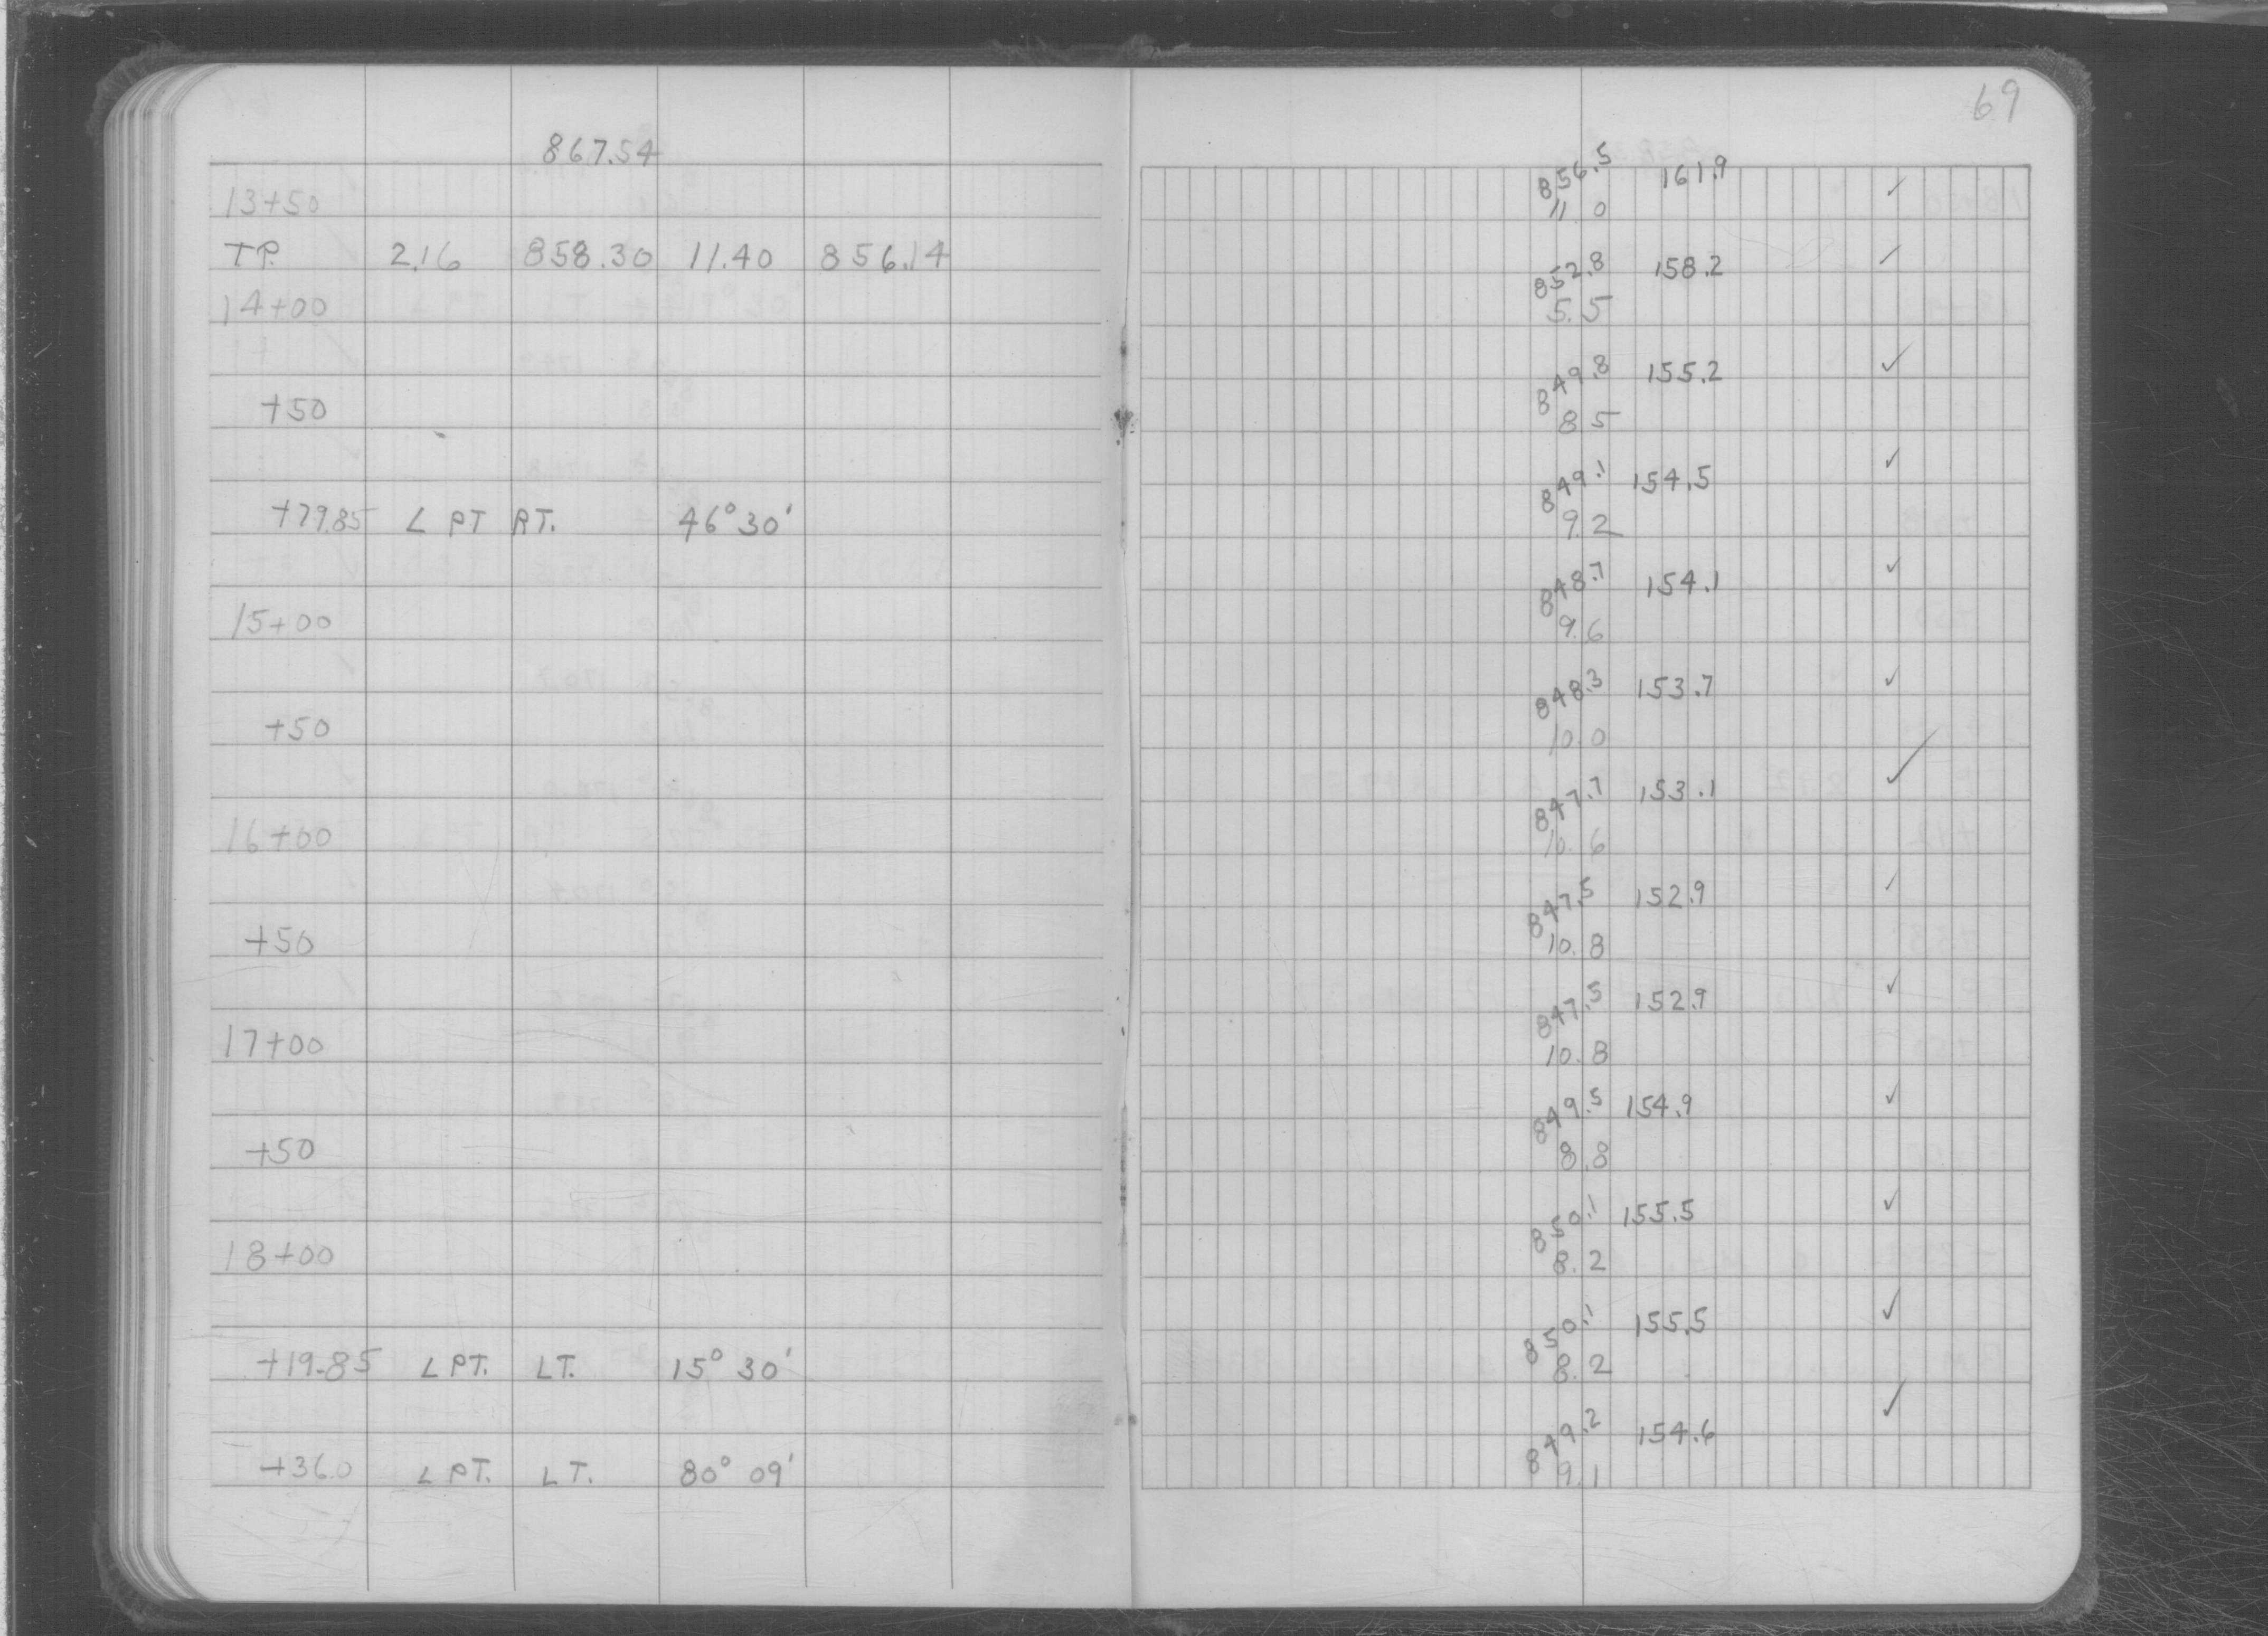 69
867.54
856.5 161.9 ✓
13+50 11.0
TP. 2.16 858.30 11.40 856.14
852.8 158.2 ✓
14+00 5.5
849.8 155.2 ✓
+50 8.5
849.1 154.5 ✓
+79.85 ∠ PT RT. 46° 30' 9.2
848.7 154.1 ✓
15+00 9.6
848.3 153.7 ✓
+50 10.0
847.7 153.1 ✓
16+00 10.6
847.5 152.9 ✓
+50 10.8
847.5 152.9 ✓
17+00 10.8
849.5 154.9 ✓
+50 8.8
850.1 155.5 ✓
18+00 8.2
850.1 155.5 ✓
+19.85 ∠ PT. LT. 15° 30' 8.2
849.2 154.6 ✓
+36.0 ∠ PT. LT. 80° 09' 9.1